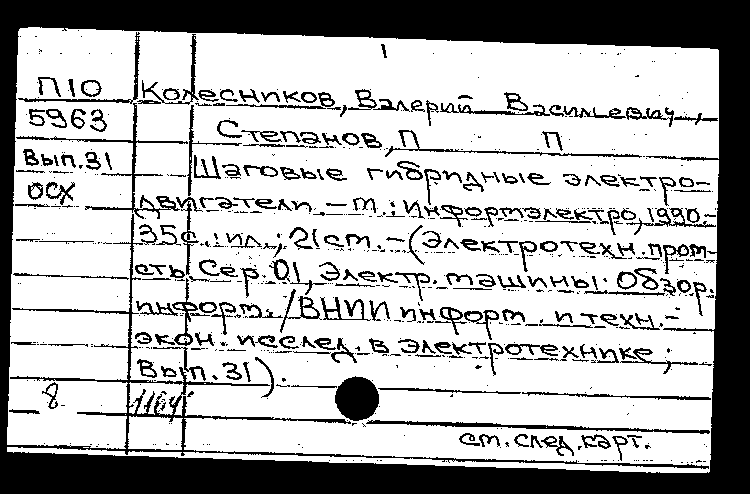 1
П10 Колесников, Валерий Васильевич,
5963 Степанов, П П
Вып.31 Шаговые гибридные электро-
ОСХ двигатели. – м.: информэлектро, 1990.-
35с.: ил.; 21см. – (Электротехн. пром-
сть. Сер. 01, Электр. машины: Обзор.
информ. / ВНИИ информ. и техн.-
экон. исслед. в электротехнике;
Вып. 31).
8
см. след. карт.